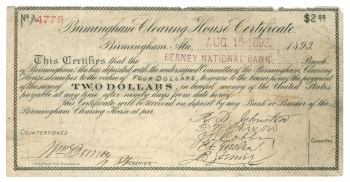 No. A4779
Birmingham Clearing House Certificate.
$2.00
Birmingham, Ala. AUG 15 1893. 1893
This Certifies that the BERNEY NATIONAL BANK Bank
of Birmingham Ala. has deposited with the undersigned Committee of the Birmingham Clearing
House, securities to the value of FOUR DOLLARS, to secure to the bearer the payment of
the sum of TWO DOLLARS, in lawful money of the United States
payable at any time after ninety days from date hereof.
This Certificate will be received on deposit by any Bank or Banker of the
Birmingham Clearing House at par.
COUNTERSIGNED
R. D. Johnston
Wm Berney